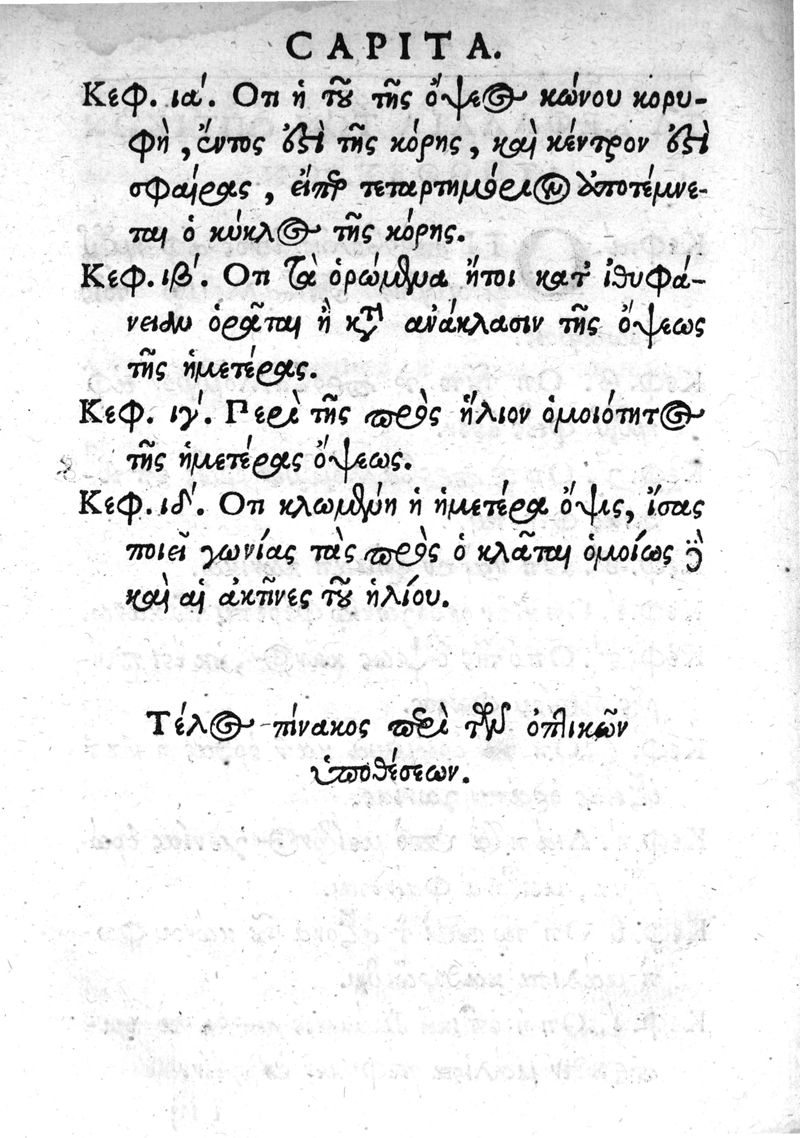 CAPITA.
Κεφ. ια΄. Ὅτι ἡ τοῦ τῆς ὄψεος κώνου κορυ-
φὴ, ἐντός ἐστὶ τῆς κόρης, καὶ κέντρον ἐστὶ
σφαίρας, ἧσπερ τεταρτημόριον ἀποτέμνε-
ται ὁ κύκλος τῆς κόρης.
Κεφ. ιβ΄. Ὅτι τὰ ὁρώμενα ἤτοι κατ' ἰθυφά-
νειαν ὁρᾶται ἢ κατὰ ἀνάκλασιν τῆς ὄψεως
τῆς ἡμετέρας.
Κεφ. ιγ΄. Περὶ τῆς πρὸς ἥλιον ὁμοιότητος
τῆς ἡμετέρας ὄψεως.
Κεφ. ιδ΄. Ὅτι κλωμένη ἡ ἡμετέρα ὄψις, ἴσας
ποιεῖ γωνίας τὰς πρὸς ὃ κλᾶται ὁμοίως
καὶ αἱ ἀκτῖνες τοῦ ἡλίου.
Τέλος πίνακος περὶ τῶν ὀπτικῶν
ὑποθέσεων.